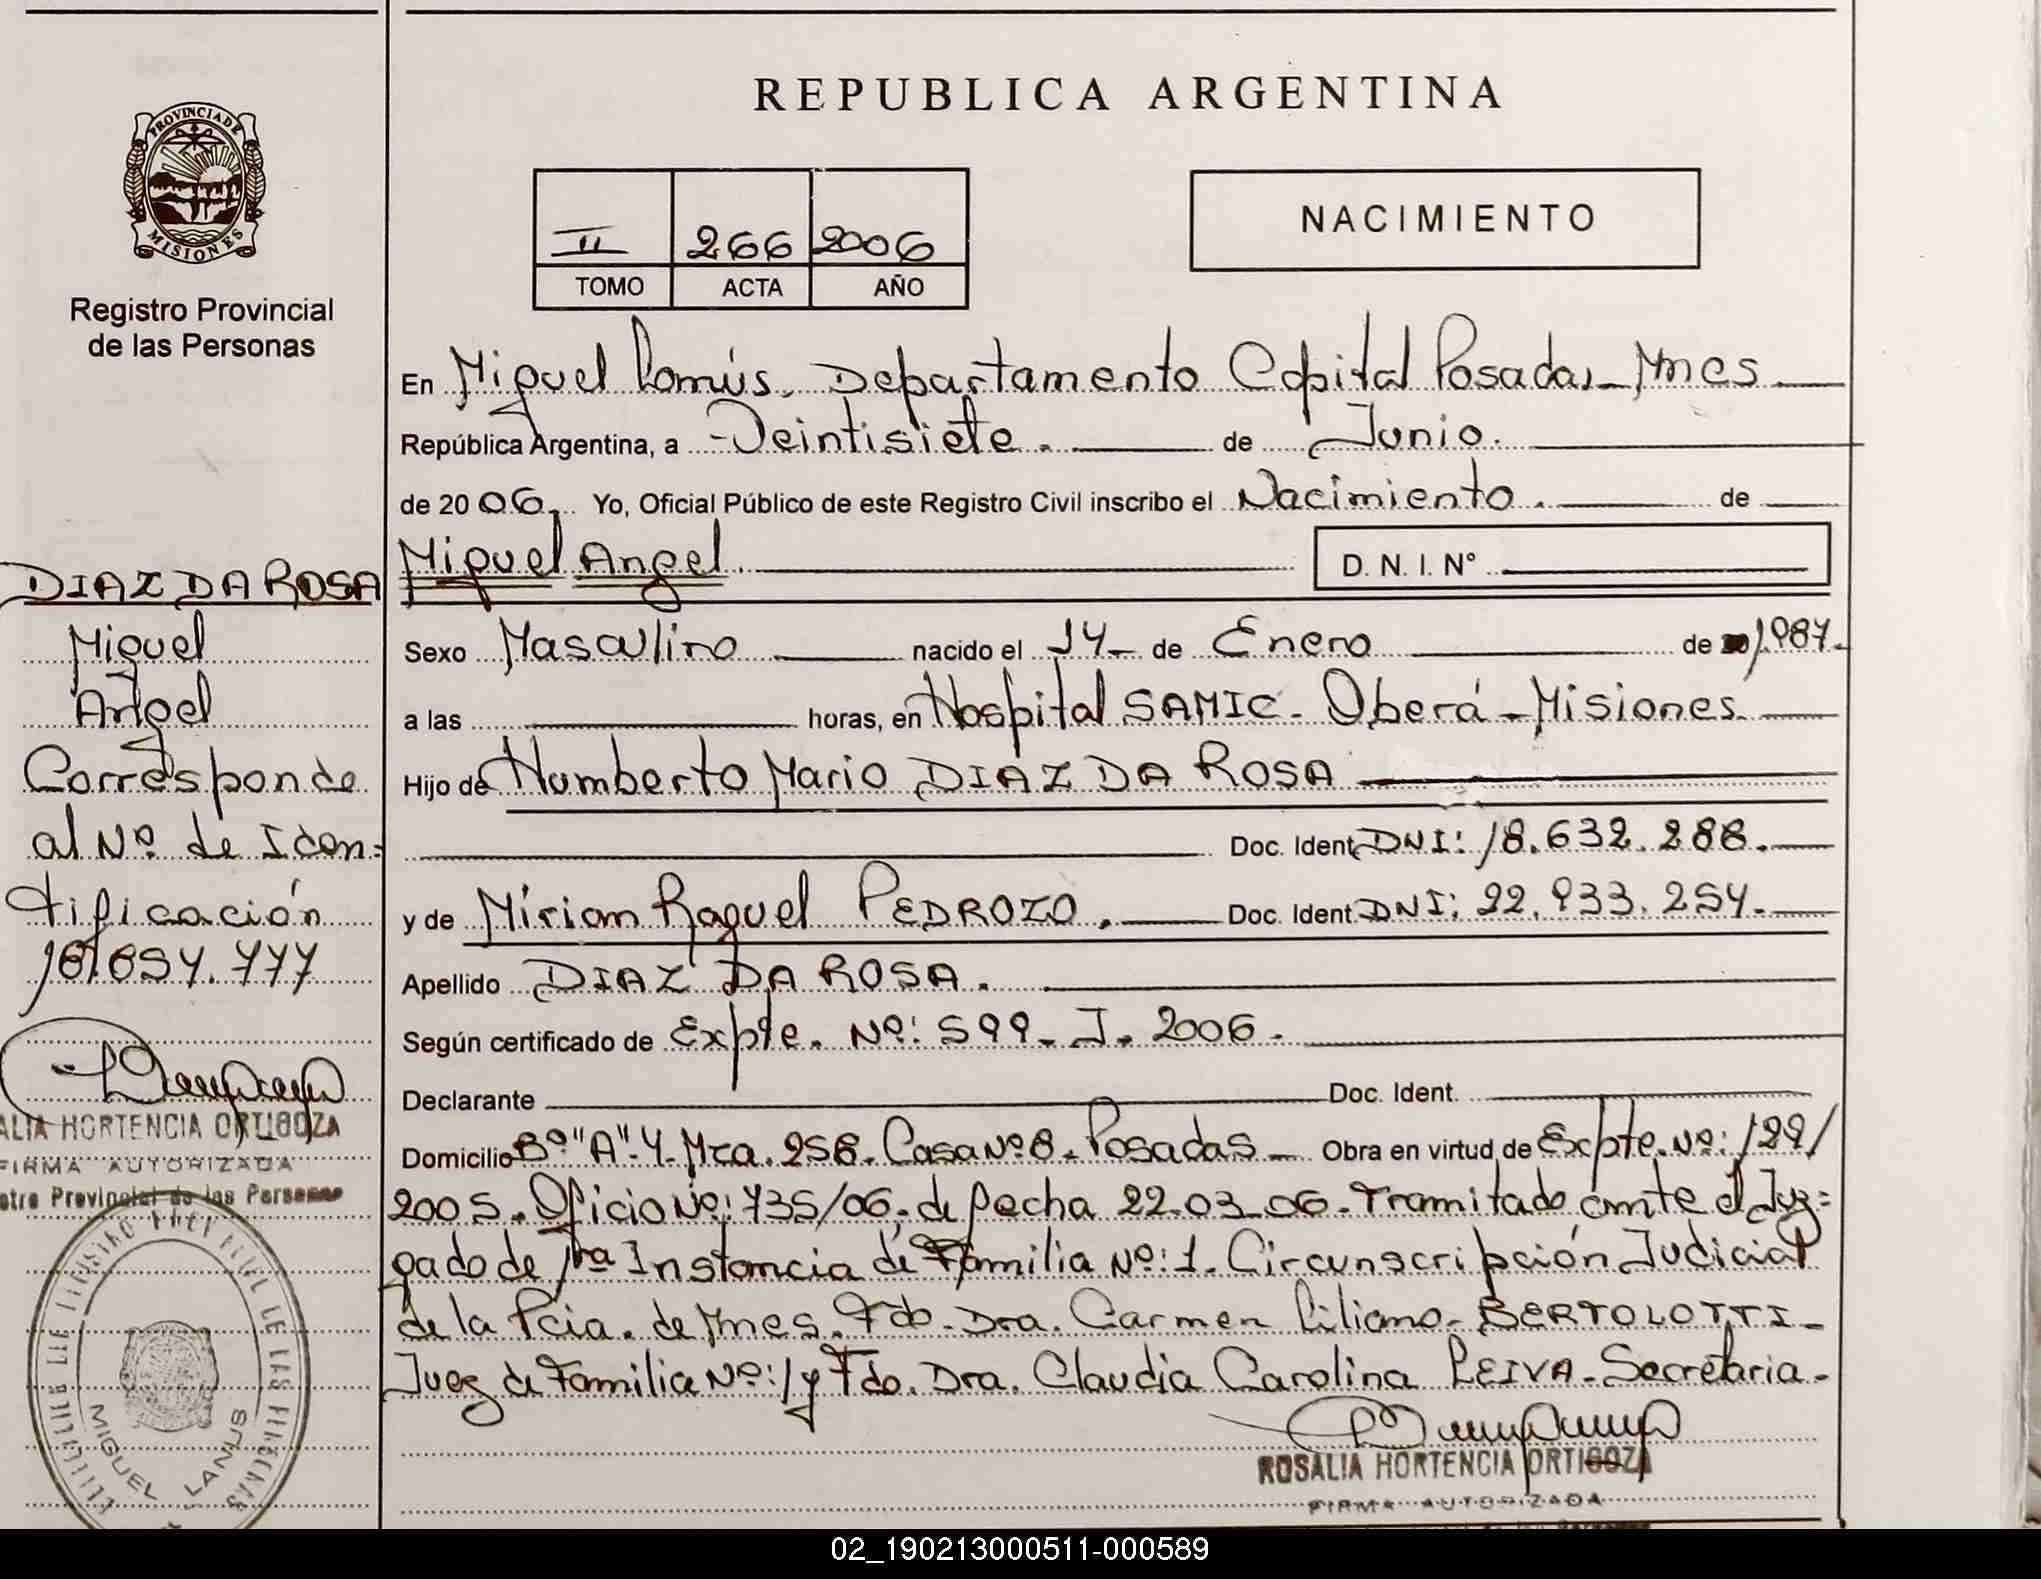 REPUBLICA ARGENTINA
PROVINCIA DE
MISIONES
Registro Provincial
de las Personas
II 266 2006
TOMO ACTA AÑO
NACIMIENTO
En Miguel Lanús, Departamento Capital Posadas - Mnes
República Argentina, a Veintisiete. de Junio.
de 2006. Yo, Oficial Público de este Registro Civil inscribo el Nacimiento. de
Miguel Angel D. N. I. N°
Sexo Masculino nacido el 14 de Enero de 1.987.
a las horas, en Hospital SAMIC - Oberá - Misiones.
Hijo de Humberto Mario DIAZ DA ROSA
Doc. Ident. DNI: 18.632.288.
y de Miriam Raquel PEDROZO. Doc. Ident. DNI: 22.933.254.
Apellido DIAZ DA ROSA.
Según certificado de Expte. Nº: 599 - J. 2006.
Declarante Doc. Ident.
Domicilio Bº "A"-4. Mza. 258. Casa Nº 8. Posadas Obra en virtud de Expte. Nº: 129/
2005. Oficio Nº: 735/06, de fecha 22-03-06. Tramitado ante el Juz=
gado de 1ra Instancia de Familia Nº: 1. Circunscripción Judicial
de la Pcia. de Mnes. Fdo. Dra. Carmen Liliana BERTOLOTTI -
Juez de Familia Nº: 1 y Fdo. Dra. Claudia Carolina LEIVA - Secretaria.
ROSALIA HORTENCIA ORTIGOZA
FIRMA AUTORIZADA
DIAZ DA ROSA
Miguel
Angel
Corresponde
al Nº de Iden=
tificación
18.654.777
ALIA HORTENCIA ORTIGOZA
FIRMA AUTORIZADA
stro Provincial de las Personas
MIGUEL LANUS
02_190213000511-000589